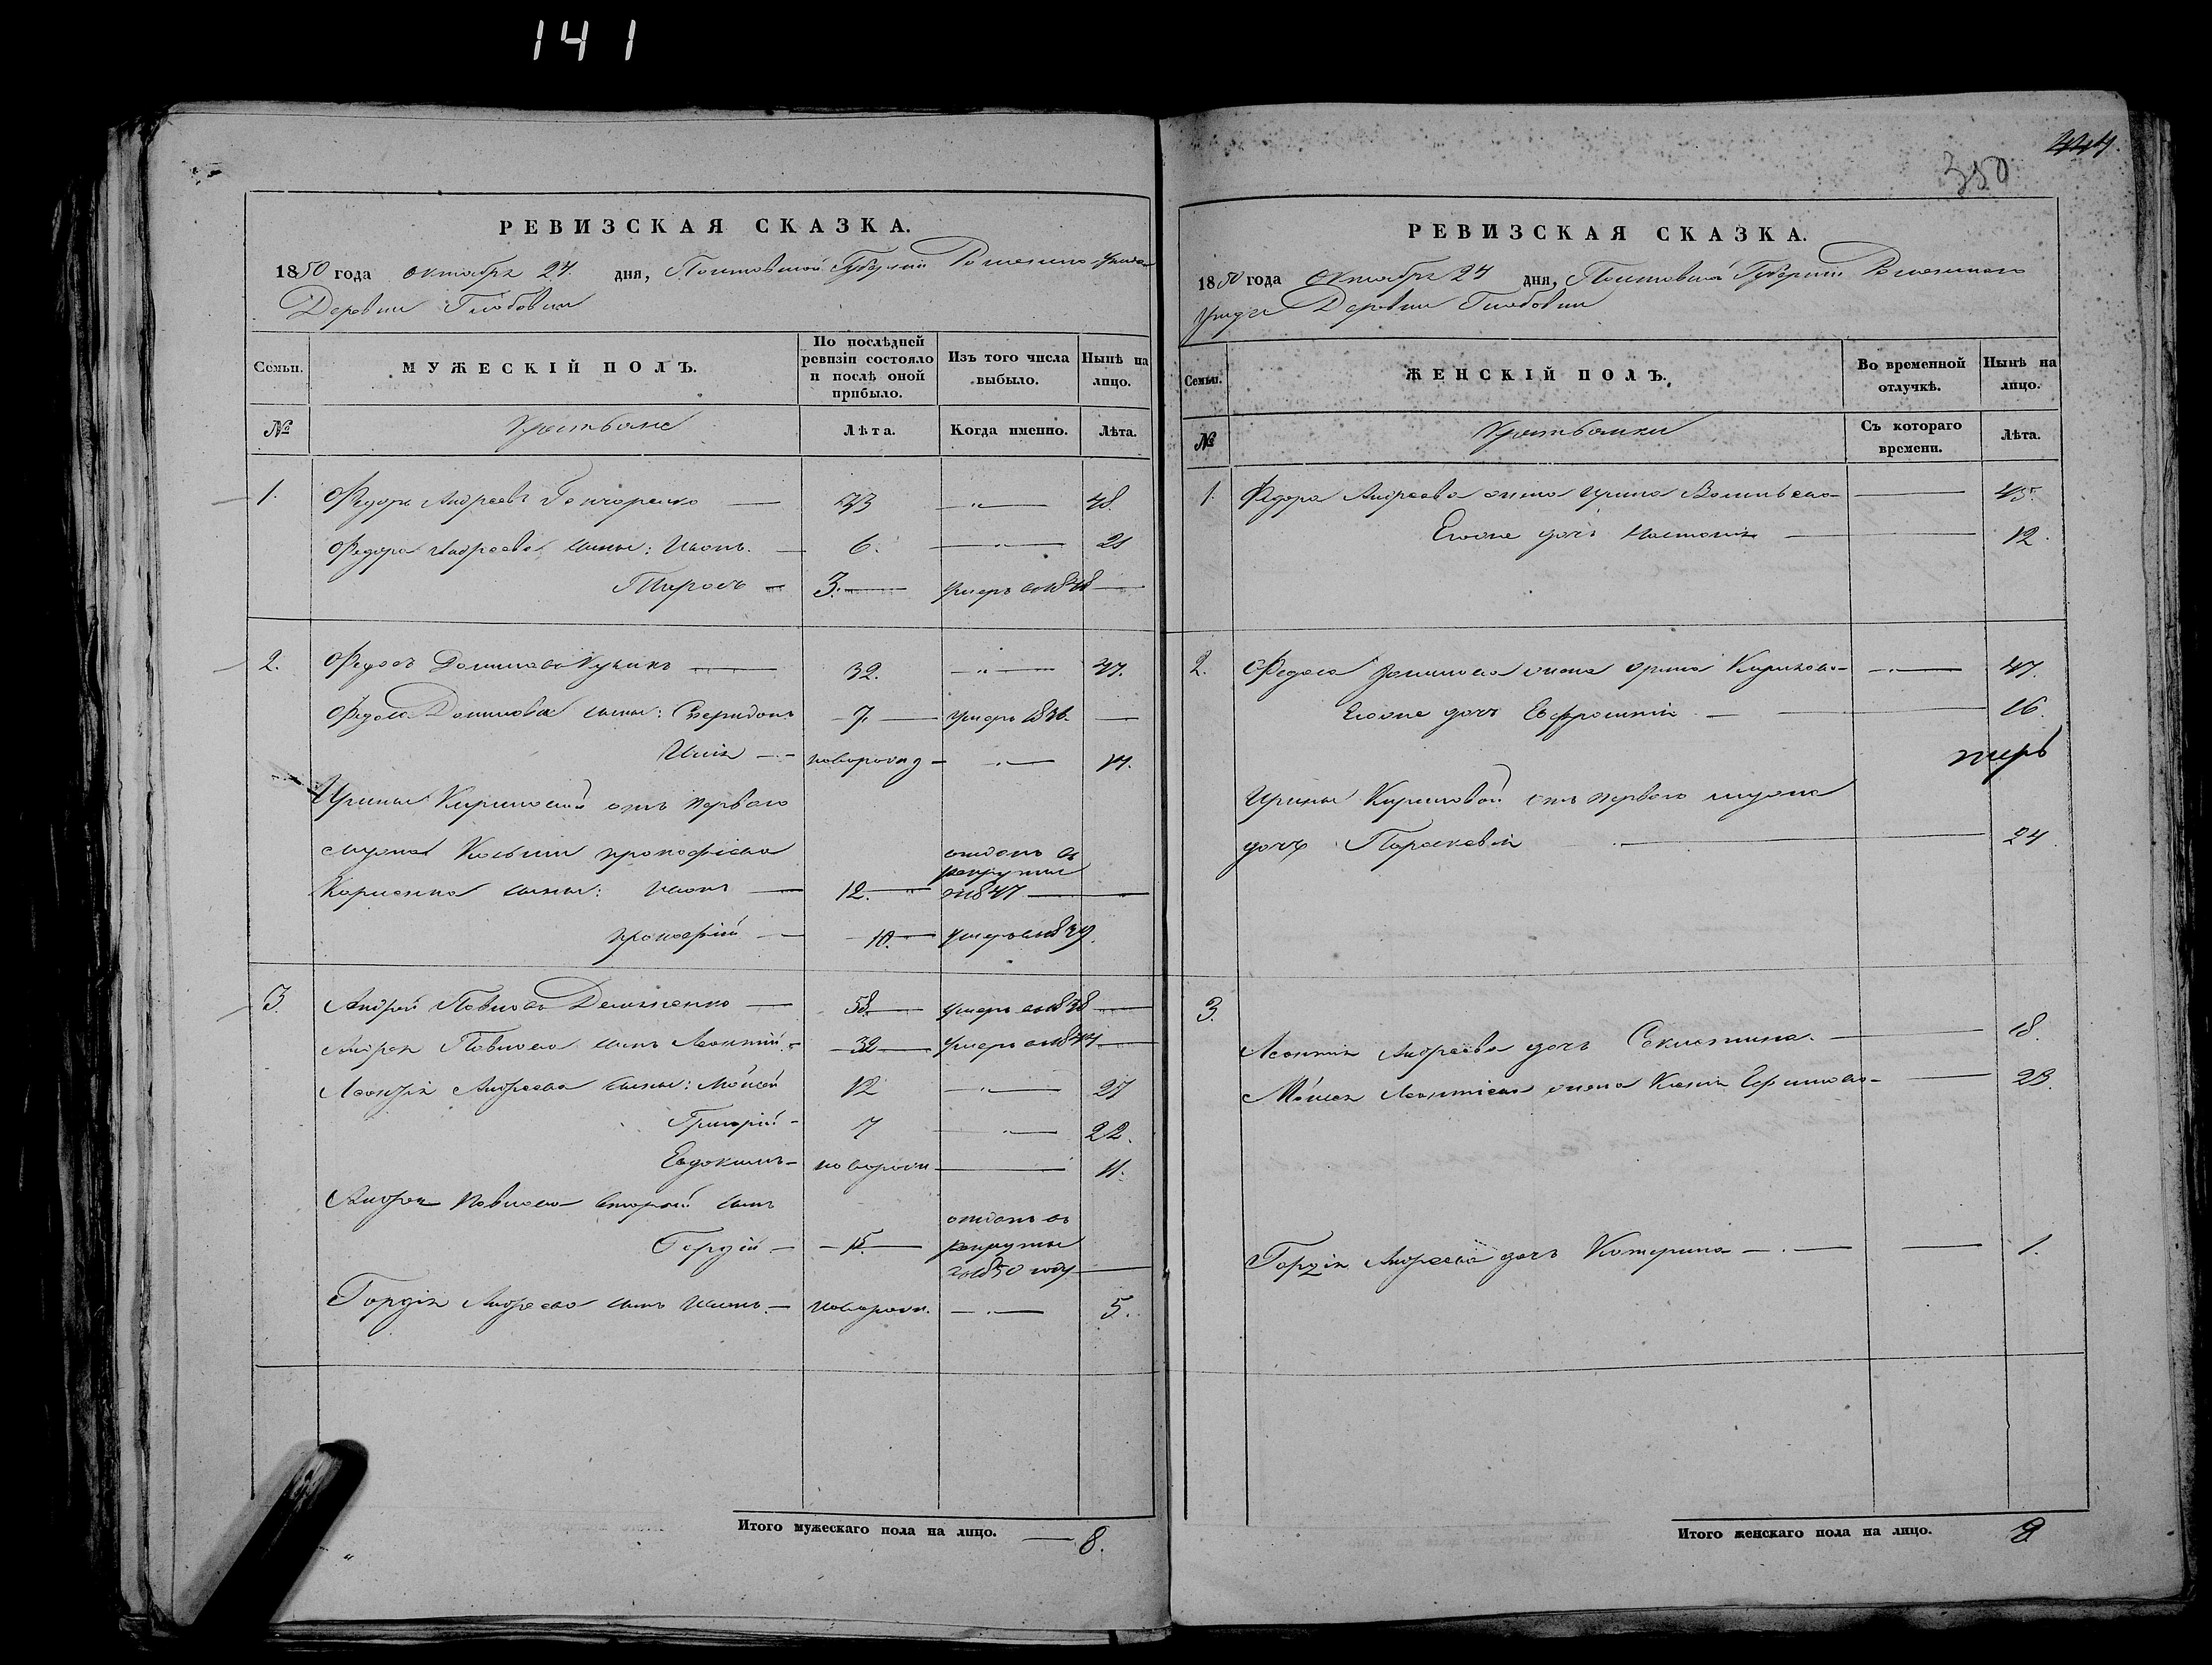 141
РЕВИЗСКАЯ СКАЗКА.
1850 года октября 27 дня, Полтавской Губерніи Роменскаго Уезда
Деревни
Семьи. МУЖЕСКІЙ ПОЛЪ. По послѣдней ревизіи состояло и послѣ оной прибыло. Изъ того числа выбыло. Нынѣ на лицо.
№ Лѣта. Когда именно. Лѣта.
1. Федоръ Андреевъ Гончаренко — 48.
Федора Андреева сыны: Иванъ. — 6. — 21
3. — умеръ 1848 —
2. 32. — 47.
сыны: Спиридонъ — 7. — умеръ 1836. —
Илія — новорожд — 14.
Ирины Кириловой отъ перваго
мужа Козьмы Прокофіева
сыны: Иванъ — 12. — отданъ въ
рекруты
1847 —
Прокофій — 10. — умеръ 1839.
3. Андрей Павловъ — 58. — умеръ 1838 —
Андрея Павлова сынъ Леонтій. — 32 —
Леонтія Андреева сыны: Мойсей 12 — 27
Григорій — 7 — 22.
Евдокимъ — новорожд — 11.
Андрея Павлова второй сынъ
Гордій — 15. — отданъ въ
рекруты
1850 году —
Гордія Андреева сынъ Иванъ. — новорожд. — 5.
Итого мужескаго пола на лицо. — 8.
444.
350
РЕВИЗСКАЯ СКАЗКА.
1850 года Октября 27 дня, Полтавской Губерніи Роменскаго
уезда Деревни
Семьи. ЖЕНСКІЙ ПОЛЪ. Во временной отлучкѣ. Нынѣ на лицо.
№ Съ котораго времени. Лѣта.
1. Федора Андреева жена Ирина Васильева — 45.
Егоже дочь Настасія — 12.
2. жена Ирина Кирилова — 47.
Егоже дочь Евфросинія — 16.
Ирины Кириловой отъ перваго мужа
дочь Параскевія — 24
3. Леонтія Андреева дочь — 18.
Мойсея Леонтіева жена — 23.
Гордія Андреева дочь Катерина — 1.
Итого женскаго пола на лицо. 8